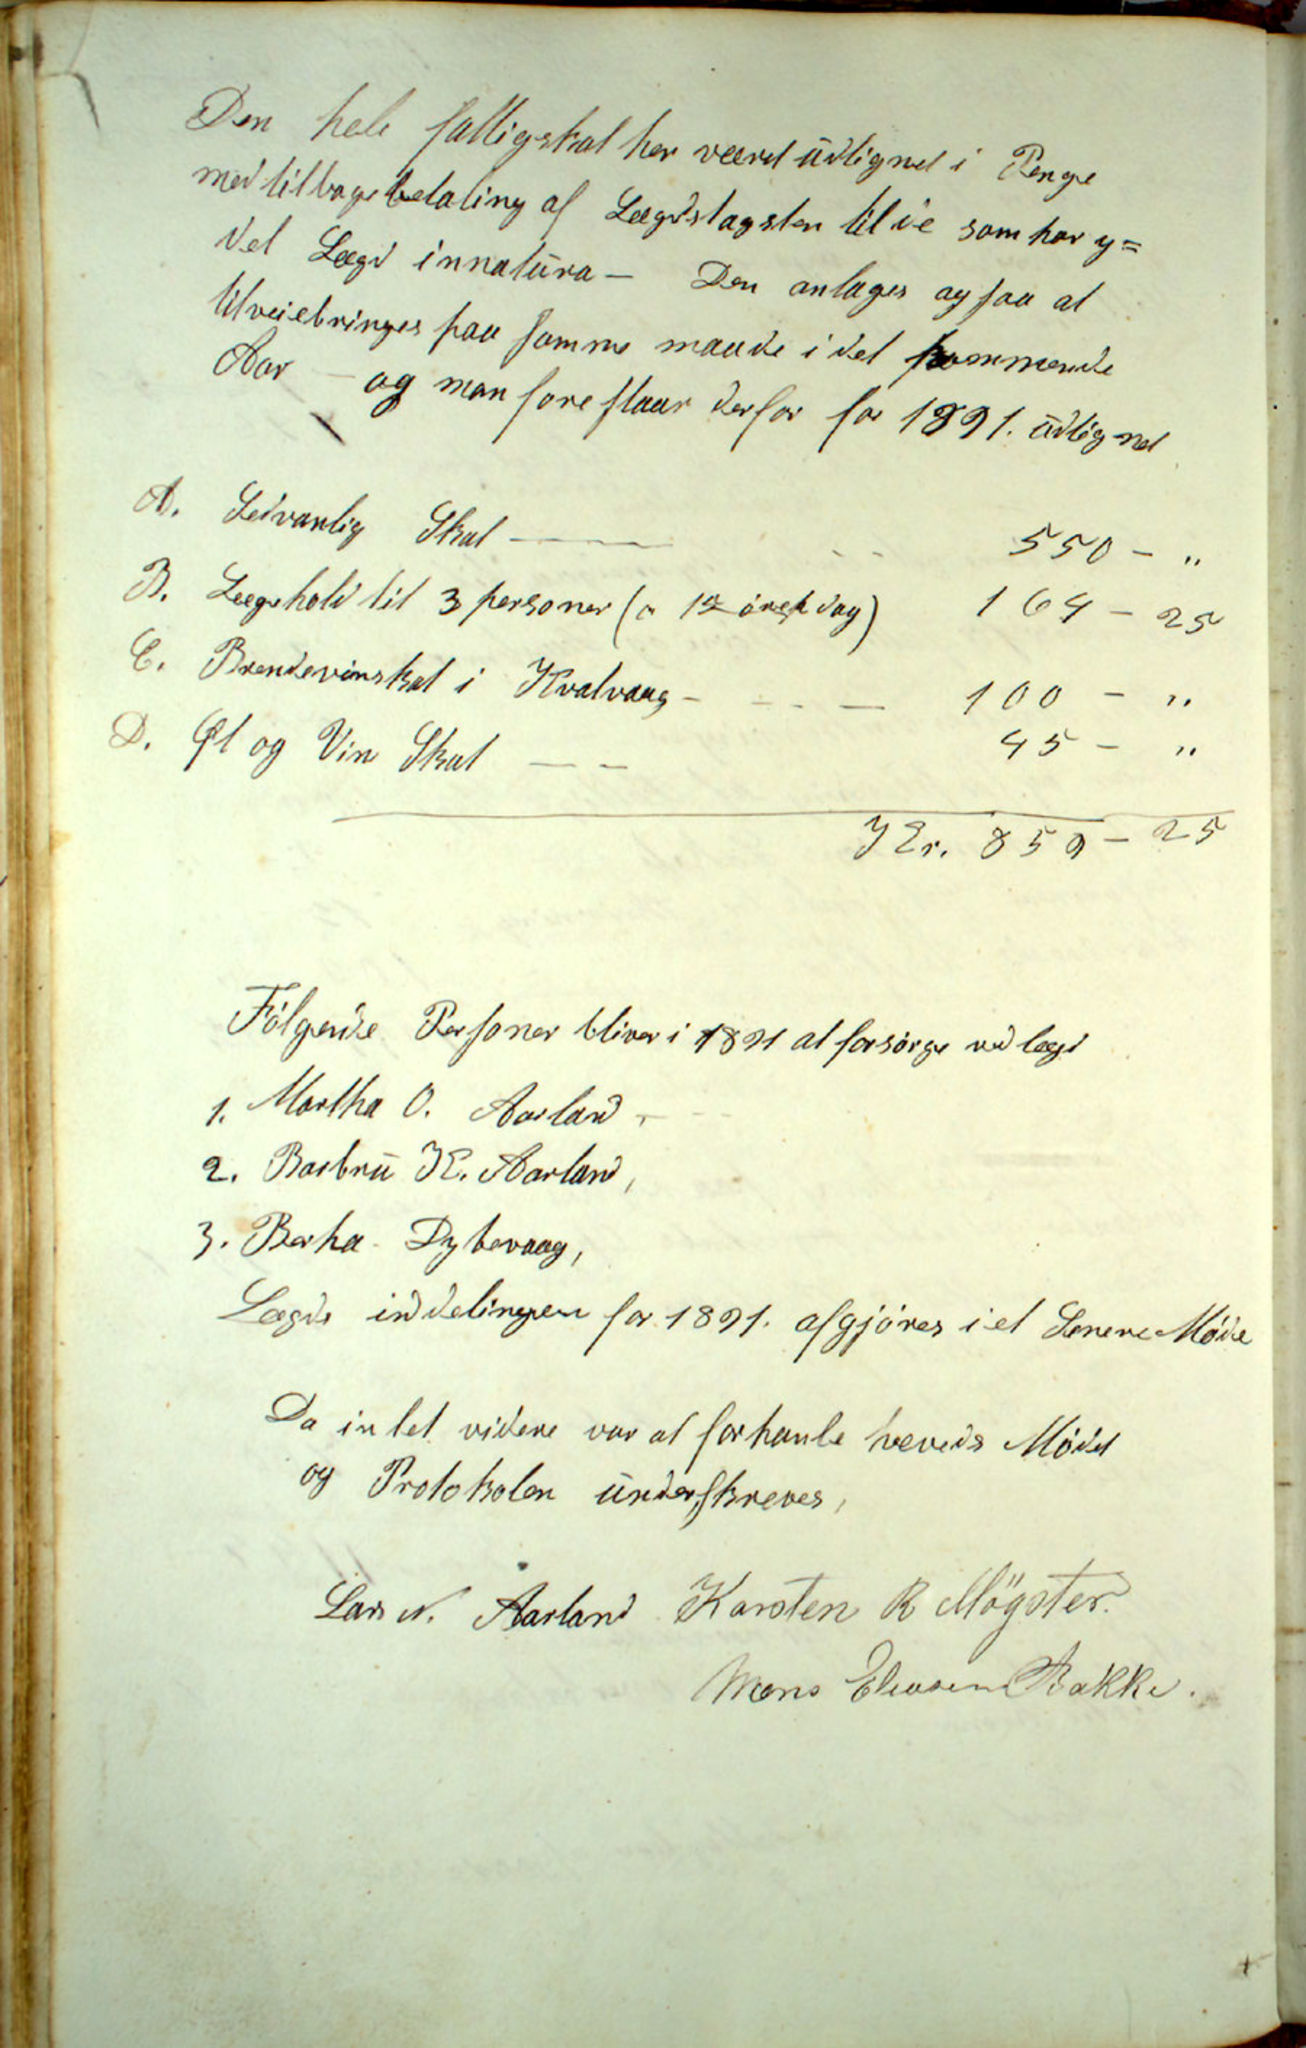 Den hele fattigskat har været udlignet i Penge
med tilbagebetaling af Lægdstagsten til de som har y=
det Lægd innatura — Den antages ogsaa at
tilveiebringes paa samme maade i det kommende
Aar — og man foreslaar derfor for 1891. udlignet
A. Sedvanlig Skat — 550 - "
B. Lægdhold til 3 personer (a 15 øre p dag) 164 - 25
C. Brendevinskat i Kvalvaag - 100 - "
D. Øl og Vin Skat — 45 - "
Kr. 859 - 25
Følgende Personer bliver i 1891 at forsørge ved lægd
1. Martha O. Aarland,
2. Barbru K. Aarland,
3. Berha Dybevaag,
Lægds inddelingen for 1891. afgjøres i et Senere Møde
Da intet videre var at forhanle hæveds Mødet
og Protokolen underskreves,
Lars N. Aarland Karsten R Mögster.
Mons Eleasen Bakke.